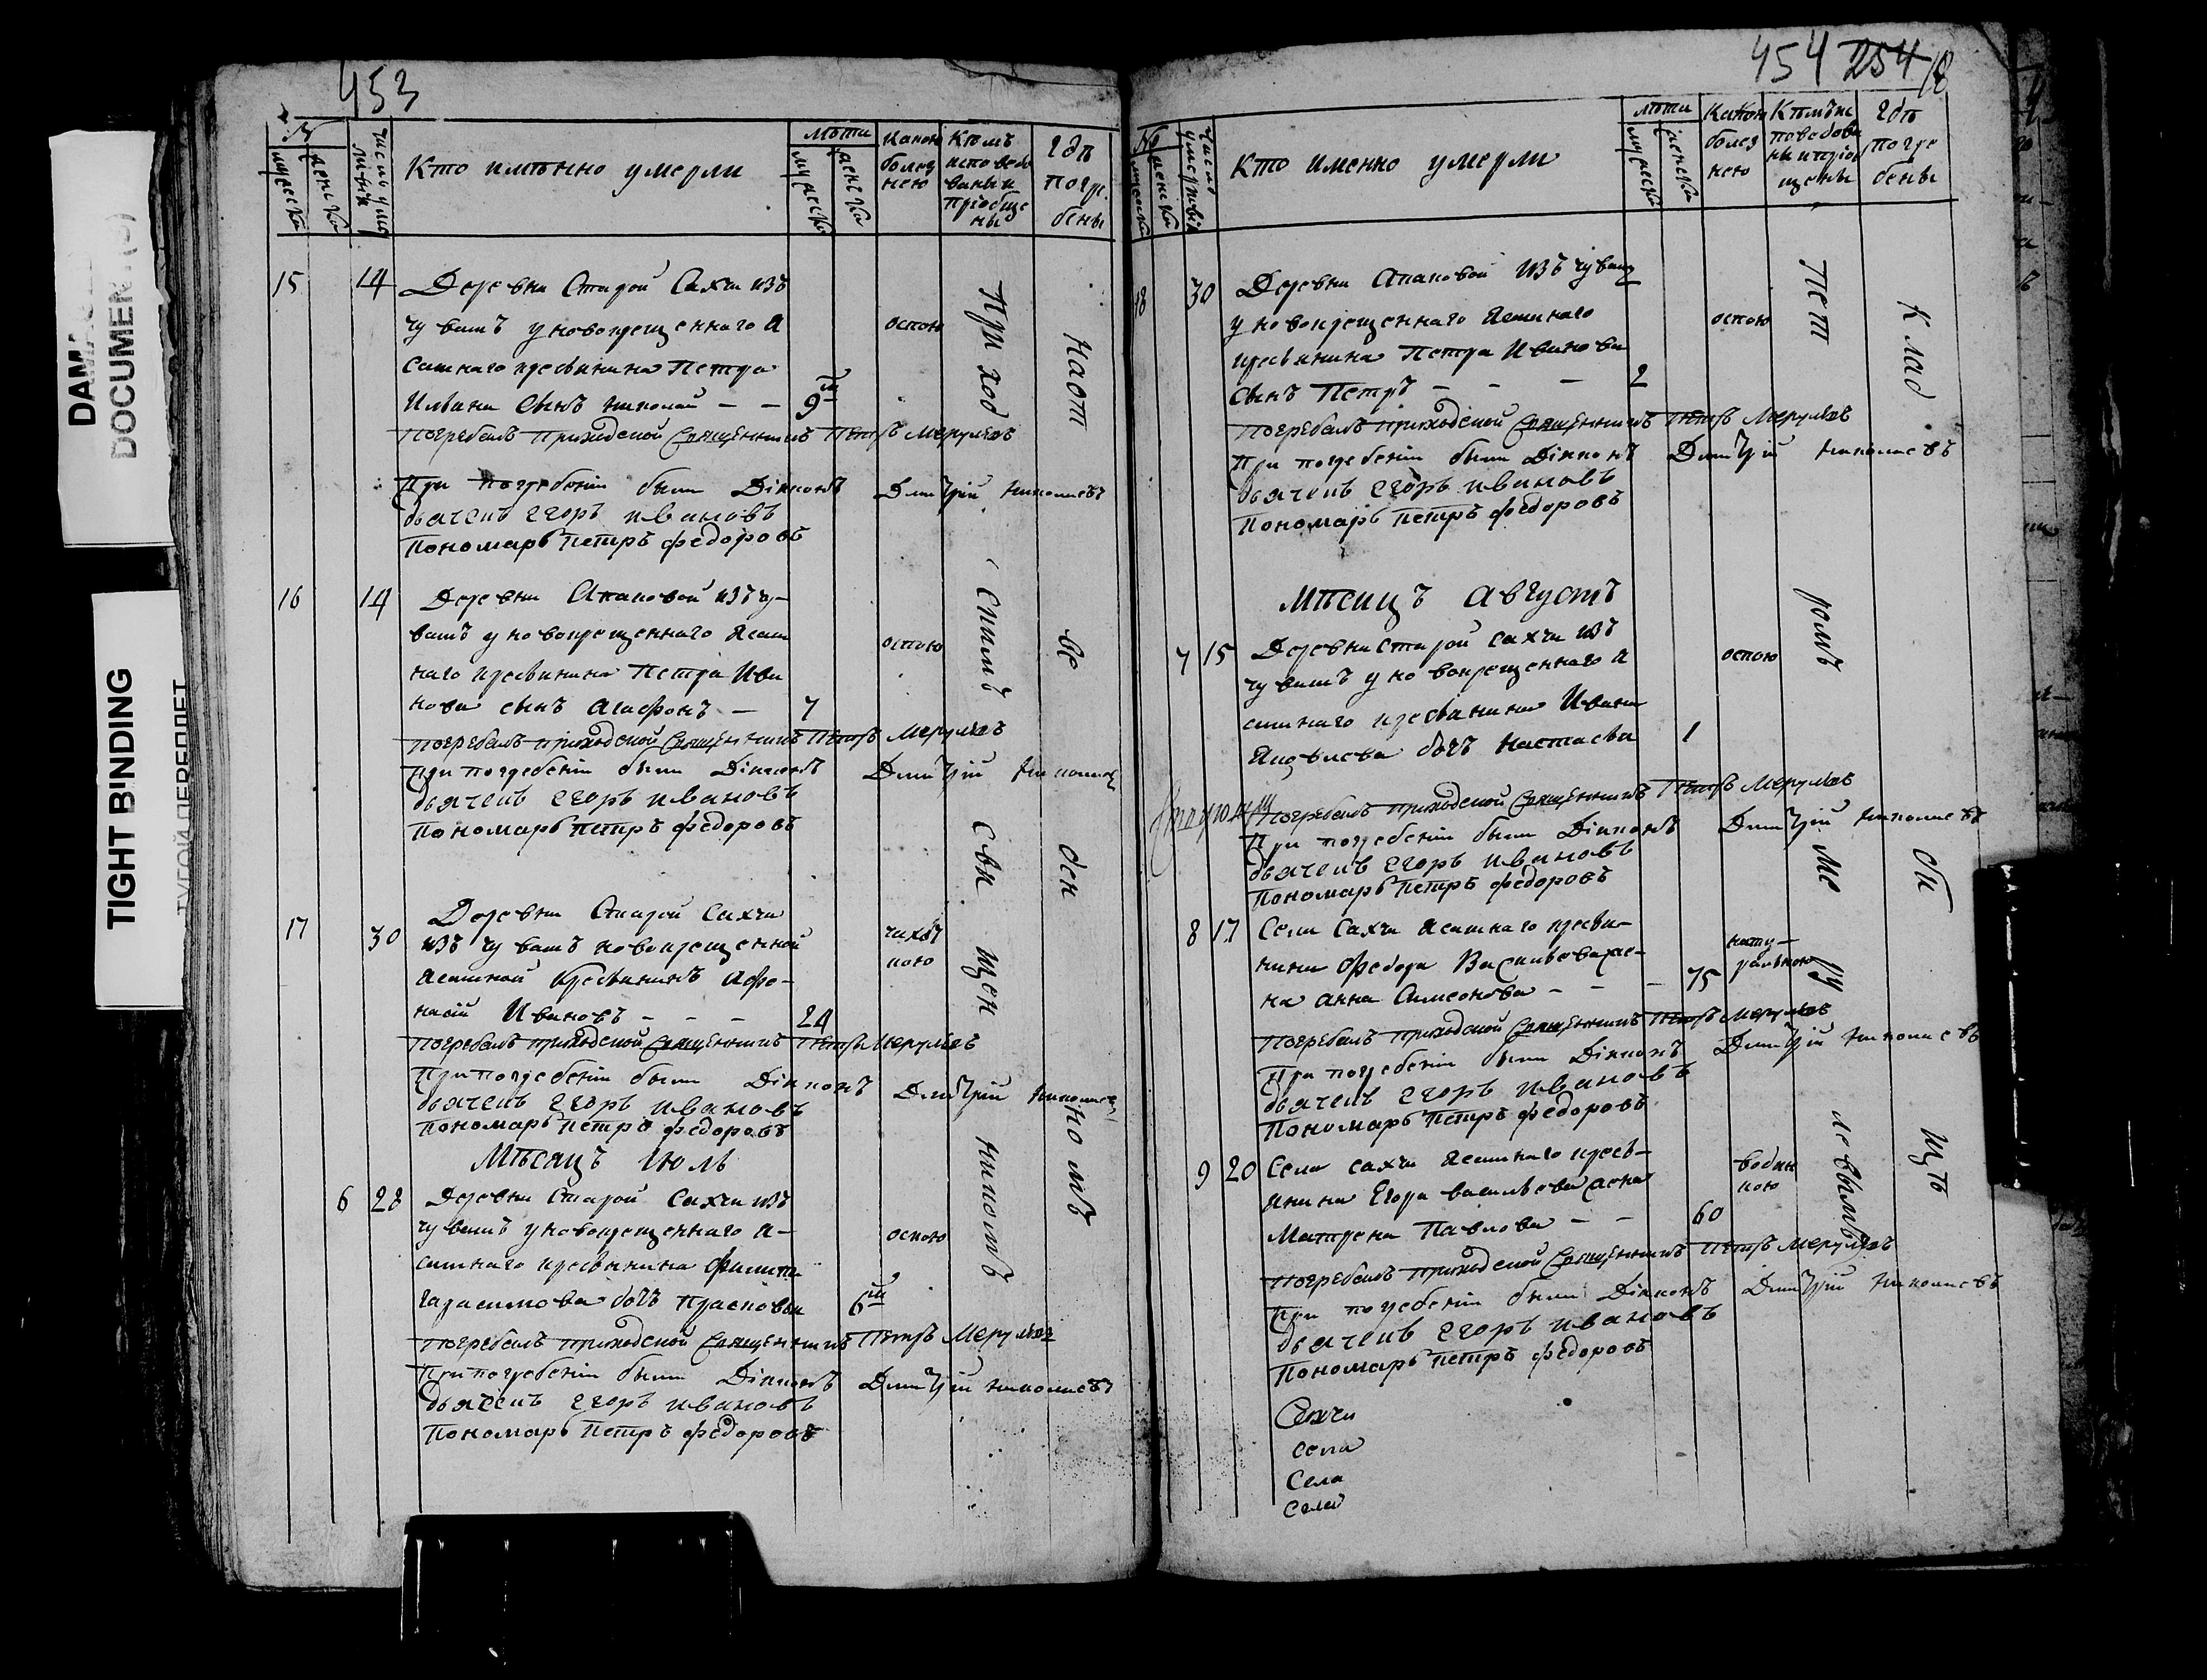 453
№
мужеска
женска
число умер
шихъ
Кто имянно умерли
лѣта
мужеска
женска
какою
болез
нею
Кѣмъ
исповедо
ваны и
пріобще
ны
гдѣ
погре
бены
15 14 Деревни Старой Сахчи изъ
чувашъ у новокрещеннаго я
сашнаго кресьянина Петра
Ильина сынъ николай — — 9й
оспою
погребалъ приходской Священникъ Петръ Меркульевъ
При погребеніи были Діаконъ Димитрій Николаевъ
дьячекъ егоръ ивановъ
Пономарь петръ федоровъ
16 14 Деревни Апаковой изъ чу-
вашъ у новокрещеннаго ясаш
наго кресьянина Петра Ива
нова сынъ агафонъ — 7
оспою
погребалъ приходской Священникъ Петръ Меркульевъ
При погребеніи были Діаконъ Димитрій Николаев
дьячекъ егоръ ивановъ
Пономарь петръ федоровъ
17 30 Деревни Старой Сахчи
изъ чувашъ новокрещенной
ясашной кресьянинъ Афо-
насій Ивановъ — — — 24
чахот
кою
погребалъ приходской Священникъ Петръ Меркульевъ
При погребеніи были Діаконъ Димитрій Николаев
дьячекъ егоръ ивановъ
Пономарь петръ федоровъ
Мѣсяцъ июль
6 28 Деревни Старой Сахчи изъ
чувашъ у новокрещеннаго я-
сашнаго кресьянина Филипа
герасимова дочъ прасковья 6й
оспою
погребалъ приходской Священникъ Петръ Меркульевъ
При погребеніи были Діаконъ Димитрій Николаевъ
дьячекъ егоръ ивановъ
Пономарь Петръ федоровъ
При ход скимъ свя щен никомъ
на от ве ден но мъ
454 254 18
№
мужеска
женска
число
умершихъ
Кто именно умерли
лѣта
мужеска
женска
Какою
болез
нею
Кѣмъ ис
поведова
ны и пріоб
щены
гдѣ
погре
бены
18 30 Деревни Апаковой изъ чуваш
у новокрещеннаго ясашнаго
кресьянина Петра Иванова
сынъ Петръ — — — 2
оспою
погребалъ приходской Священникъ Петръ Меркульевъ
При погребеніи были Діаконъ Димитрій Николаевъ
дьячекъ егоръ ивановъ
Пономарь петръ федоровъ
Мѣсяцъ августъ
7 15 Деревни Старой сахчи изъ
чувашъ у новокрещеннаго я
сашнаго кресьянина Ивана
дочъ настасья 1
оспою
погребалъ приходской Священникъ Петръ Меркульевъ
При погребеніи были Діаконъ Димитрій Николаевъ
дьячекъ егоръ ивановъ
Пономарь петръ федоровъ
8 17 Села Сахчи ясашнаго кресья-
нина Федора Васильева же-
на анна Симеонова — — — 75
нату-
ральною
погребалъ приходской Священникъ Петръ Меркульевъ
При погребеніи были Діаконъ Димитрій Николаевъ
дьячекъ егоръ ивановъ
Пономарь петръ федоровъ
9 20 Села сахчи ясашнаго кресь-
янина Егора васильева жена
Матрена Павлова — — 60
водян
кою
погребалъ приходской Священникъ Петръ Меркульевъ
При погребеніи были Діаконъ Димитрій Николаевъ
дьячекъ егоръ ивановъ
Пономарь петръ федоровъ
Пет ромъ Ме ру левымъ
К лад би щѣ
Сахчи
села
Села
Села
DAMAGED
DOCUMENT(S)
TIGHT BINDING
ТУГОЙ ПЕРЕПЛЕТ